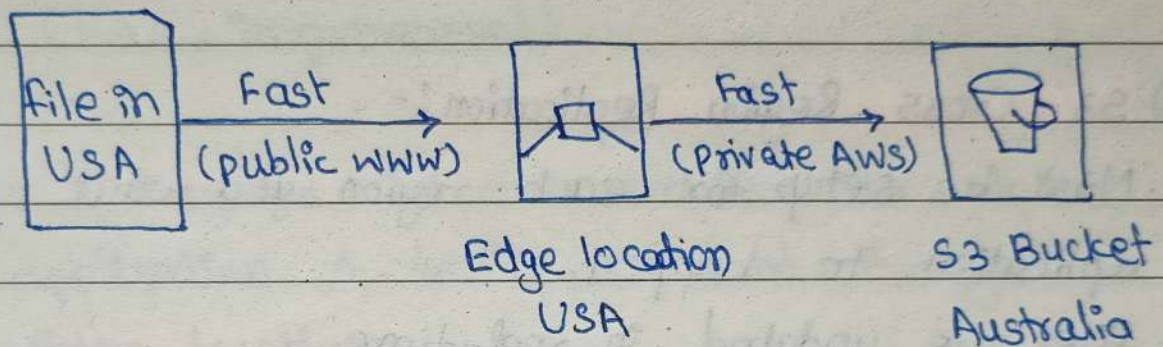 file in
USA
Fast
(public www)
Fast
(private AWS)
Edge location
USA
S3 Bucket
Australia